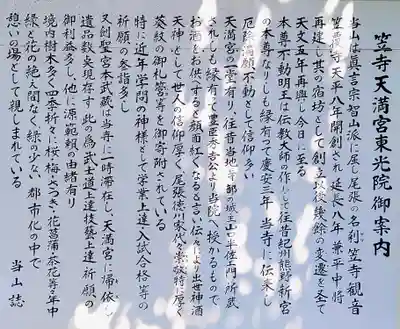 笠寺天満宮東光院御案内
当山は真言宗智山派に属し尾張の名刹、笠寺観音
笠覆寺、天平八年開創され、延長八年、兼平中将
再建し其の宿坊として創立、以後幾餘の変遷を葊て
天文五年再興し今日に至る
本尊不動明王は伝教大師の作にして往昔紀州熊野新宮
の本尊なりしも縁有って慶安三年、当寺に伝来し
厄除満願不動として信仰多い
天満宮の一壱有り、往昔当地寺部の城主山口半左エ門所武
されしも縁有って豊臣秀吉公より当院へ授かるもので
お酒をお供すると顔面紅くなるとさい伝えより出世神酒
天神として世人の信仰厚く尾張徳川家代々崇敬特に厚く
葵紋の御札等を御寄附されている
特に近年学問の神様として学業上達、入試合格等の
祈願の参詣多し
又剣聖宮本武蔵は当寺に一時滞在し、天満宮に帰依し
遺品数矣現存す、此の為武士道上達技藝上達祈願の
御利益多し、他に源範頼の由緒有り
境内樹木多く四季折々に桜、梅、さつき・花菖蒲・茶花等々年中
緑と花の絶え間なく緑の少ない都市化の中で
憩いの場として親しまれている
当山誌